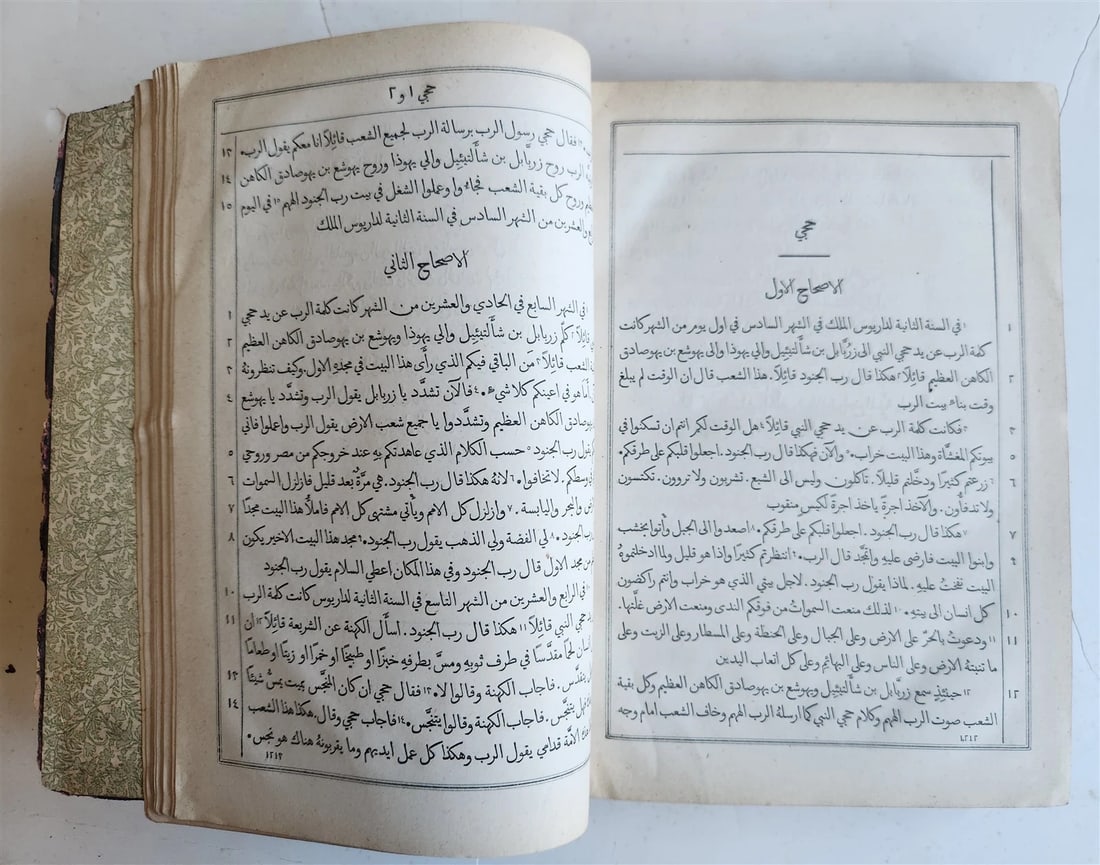 حجي
الاصحاح الاول
١ ١في السنة الثانية لداريوس الملك في الشهر السادس في اول يوم من الشهر كانت
كلمة الرب عن يد حجي النبي الى زربّابل بن شألتيئيل والي يهوذا والى يهوشع بن يهوصادق
٢ الكاهن العظيم قائلاً ٢هكذا قال رب الجنود قائلاً. هذا الشعب قال ان الوقت لم يبلغ
وقت بناء بيت الرب
٣ ٣فكانت كلمة الرب عن يد حجي النبي قائلاً ٤هل الوقت لكم انتم ان تسكنوا في
٥ بيوتكم المغشّاة وهذا البيت خراب. ٥والآن فهكذا قال رب الجنود. اجعلوا قلبكم على طرقكم.
٦ ٦زرعتم كثيرًا ودخّلتم قليلاً. تأكلون وليس الى الشبع. تشربون ولا تروون. تكتسون
ولا تدفأون. والآخذ اجرةً ياخذ اجرةً لكيس منقوب
٧ ٧هكذا قال رب الجنود. اجعلوا قلبكم على طرقكم. ٨اصعدوا الى الجبل وأتوا بخشب
وابنوا البيت فارضى عليهِ واتمجّد قال الرب. ٩انتظرتم كثيرًا واذا هو قليل ولما ادخلتموهُ
البيت نفختُ عليهِ. لماذا يقول رب الجنود. لاجل بيتي الذي هو خراب وانتم راكضون
١٠ كل انسان الى بيتهِ. ١٠لذلك منعت السموات من فوقكم الندى ومنعت الارض غلّتها.
١١ ١١ودعوتُ بالحرّ على الارض وعلى الجبال وعلى الحنطة وعلى المسطار وعلى الزيت وعلى
ما تنبتهُ الارض وعلى الناس وعلى البهائم وعلى كل اتعاب اليدين
١٢ ١٢حينئذٍ سمع زربّابل بن شألتيئيل ويهوشع بن يهوصادق الكاهن العظيم وكل بقية
الشعب صوت الرب الههم وكلام حجي النبي كما ارسلهُ الرب الههم وخاف الشعب امام وجه
١٢١٢
حجي ١ و٢
١٣ فقال حجي رسول الرب برسالة الرب لجميع الشعب قائلاً انا معكم يقول الرب.
١٤ الرب روح زربّابل بن شألتيئيل والي يهوذا وروح يهوشع بن يهوصادق الكاهن
١٥ وروح كل بقية الشعب فجاءُوا وعملوا الشغل في بيت رب الجنود الههم ١٥في اليوم
والعشرين من الشهر السادس في السنة الثانية لداريوس الملك
الاصحاح الثاني
١ في الشهر السابع في الحادي والعشرين من الشهر كانت كلمة الرب عن يد حجي
٢ قائلاً ٢كلّم زربابل بن شألتيئيل والي يهوذا ويهوشع بن يهوصادق الكاهن العظيم
٣ الشعب قائلاً ٣مَن الباقي فيكم الذي رأى هذا البيت في مجدهِ الاول. وكيف تنظرونهُ
٤ أما هو في اعينكم كلا شيء. ٤فالآن تشدَّد يا زربابل يقول الرب وتشدَّد يا يهوشع
يهوصادق الكاهن العظيم وتشدَّدوا يا جميع شعب الارض يقول الرب واعملوا فاني
٥ يقول رب الجنود ٥حسب الكلام الذي عاهدتكم بهِ عند خروجكم من مصر وروحي
٦ في وسطكم. لا تخافوا. ٦لانهُ هكذا قال رب الجنود. هي مرَّةً بعد قليل فازلزل السموات
٧ والبحر واليابسة. ٧وازلزل كل الامم ويأتي مشتهى كل الامم فاملأُ هذا البيت مجدًا
٨ رب الجنود. ٨لي الفضة ولي الذهب يقول رب الجنود. ٩مجد هذا البيت الاخير يكون
من مجد الاول قال رب الجنود وفي هذا المكان اعطي السلام يقول رب الجنود
١٠ في الرابع والعشرين من الشهر التاسع في السنة الثانية لداريوس كانت كلمة الرب
١١ حجي النبي قائلاً ١١هكذا قال رب الجنود. اسأَل الكهنة عن الشريعة قائلاً ١٢ان
انسان لحمًا مقدَّسًا في طرف ثوبهِ ومسَّ بطرفهِ خبزًا او طبيخًا او خمرًا او زيتًا او طعامًا
١٣ يتقدَّس. فاجاب الكهنة وقالوا لا. ١٣فقال حجي ان كان المنجَّس بميت يمسُّ شيئًا
١٤ يتنجَّس. فاجاب الكهنة وقالوا يتنجَّس. ١٤فاجاب حجي وقال. هكذا هذا الشعب
الامَّة قدامي يقول الرب وهكذا كل عمل ايديهم وما يقربونهُ هناك هو نجس.
١٢١٣